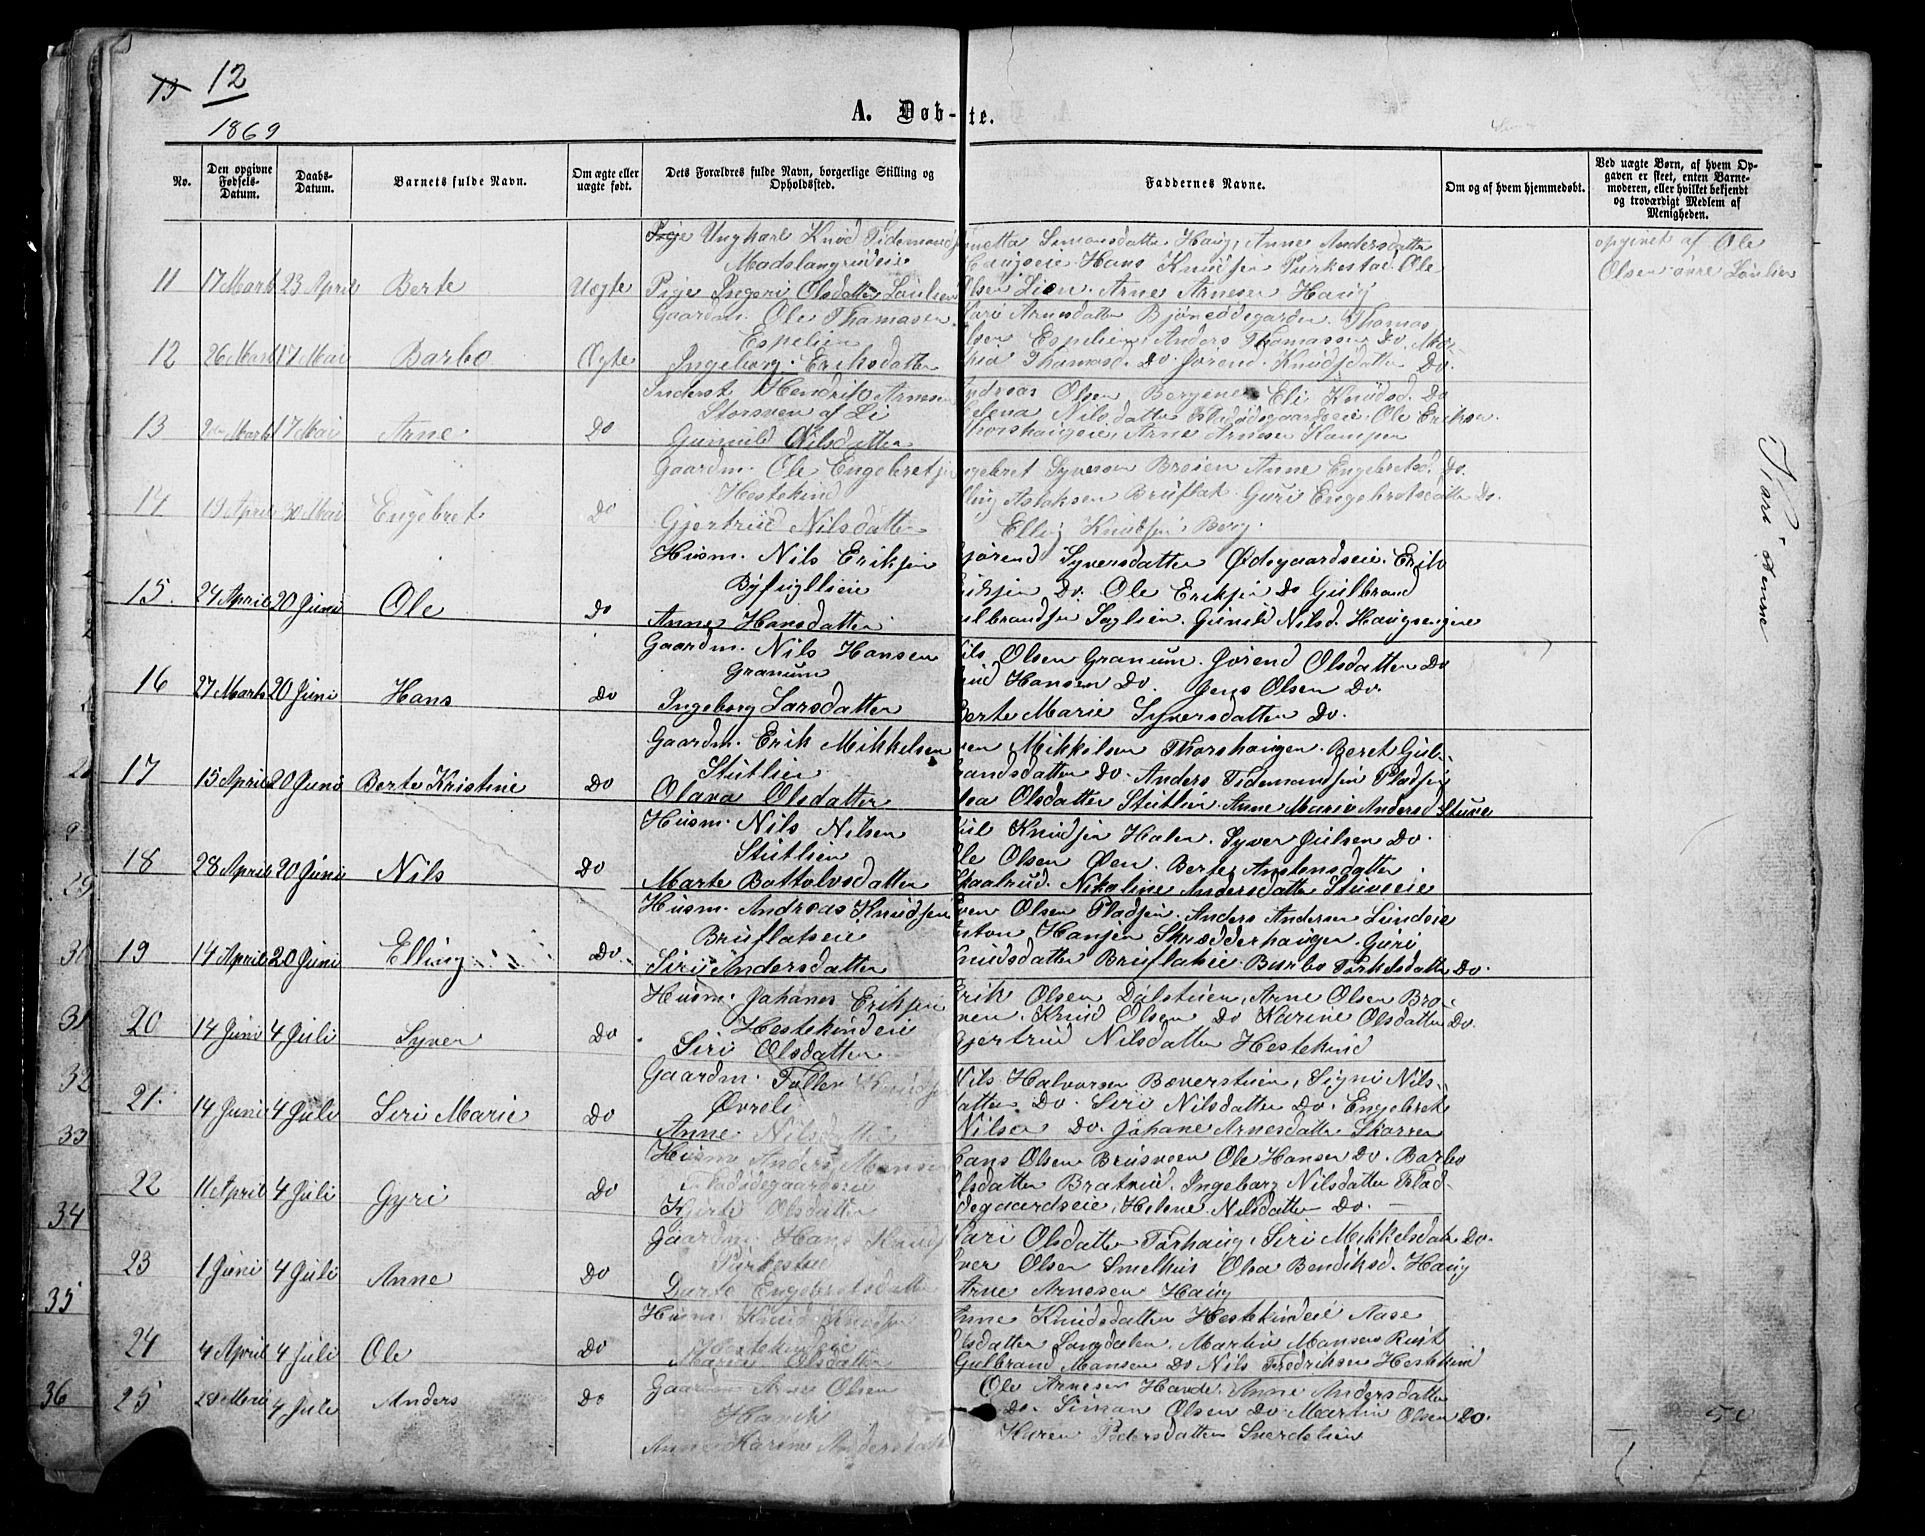 13 12
1869
A. Døb-te.
No.
Den opgivne Fødsels-Datum.
Daabs-Datum.
Barnets fulde Navn.
Om ægte eller uægte født.
Dets Forældres fulde Navn, borgerlige Stilling og Opholdssted.
Faddernes Navne.
Om og af hvem hjemmedøbt.
Ved uægte Børn, af hvem Opgaven er skeet, enten Barnemoderen, eller hvilket bekjendt og troværdigt Medlem af Menigheden.
Ungkarl Knud Tidemandsen
Madslangrudeie
11 17 Marts 23 April Berte Uægte Pige Ingeri Olsdatter Loulien
Simonsdatter Haug, Anne Andersdatter
Haugseie Hans Knudsen Purkestad Ole
Olsen Lien Arne Arnesen Haug
opgivet af Ole
Olsen øvre Loulien
Gaardm. Ole Thomasen
Espelien
12 26 Marts 17 Mai Barbo Ægte Ingeborg Eriksdatter
Kari Arnesdatter Bjøneødegarden. Thomas
Olsen Espelien, Anders Thomassen Do.
Thomasd. Do. Jørend Knudsdatter Do.
Inderst Hendrik Arnesen
Storsveen af Li
13 Marts 17 Mai Arne Do Gunild Nilsdatter
Andreas Olsen Bergene Eli Knudsd. Do
Helena Nilsdatter Ole Eriksen
Thorshaugeie, Arne Arnesen Kampen
Gaardm. Ole Engebretsen
Hestekind
14 19 April 30 Mai Engebret Do Gjertrud Nilsdatter
Engebret Syversen Brøien Anne Engebretsd. Do.
Elling Aslaksen Bruflat. Guri Engebretsdatter Do.
Elling Knudsen Berg.
Husm. Nils Eriksen
Byfuglleie
15. 24 April 20 Juni Ole Do Anne Hansdatter
Jørend Syversdatter Ødegaardseie. Erik
Eriksen Do. Ole Eriksen Do Gulbrand
Gulbrandsen Saglien. Gunild Nilsd. Haugsengene
Gaardm. Nils Hansen
Granum
16 27 Marts 20 Juni Hans Do Ingeborg Larsdatter
Nils Olsen Granum. Jørend Olsdatter Do
Knud Hansen Do. Jens Olsen Do.
Berte Marie Syversdatter Do.
Gaardm. Erik Mikkelsen
Stutlien
17 15 April 20 Juni Berte Kristine Do Olava Olsdatter
Mikkelsen Thorshaugen. Beret Gul-
brandsdatter Do. Anders Tidemandsen Pladsen
Olsdatter Stutlien. Anne Marie Andersd. Stuve
Husm. Nils Nilsen
Stutlien
18 28 April 20 Juni Nils Do Marte Bottolvsdatter
Knudsen Halen. Syver Juulsen Do.
Ole Olsen Øen. Berte Amstensdatter
Skaalrud. Nikoline Andersdatter Stuveeie
Husm. Andreas Knudsen
Bruflateie
19 14 April 20 Juni Elling Do. Siri Andersdatter
Olsen Pladsen. Anders Andersen Lindeie
Anton Hansen Skrædderhaugen. Guri
Knudsdatter Bruflateie. Barbo Torkelsdatter Do.
Husm. Johanes Eriksen
Hestekindeie
20 14 Juni 4 Juli Syver Do Siri Olsdatter
Erik Olsen Dalstuen, Arne Olsen Bro-
Knud Olsen Do Karine Olsdatter Do.
Gjertrud Nilsdatter Hestekind
Gaardm. Toller Knudsen
Øvreli
21. 14 Juni 4 Juli Siri Marie Do Anne Nilsdatter
Nils Halvorsen Bæverstuen, Signi Nils-
datter Do. Siri Nilsdatter Do. Engebret
Nilsen Do. Johane Arnesdatter Skarren
Husm Anders Mansen
22 11 April 4 Juli Gyri Do Olsdatter
Hans Olsen Brusveen Ole Hansen Do. Barbo
Olsdatter Bratrud. Ingeborg Nilsdatter Flad-
ødegaardseie, Helene Nilsdatter Do.
Gaardm. Hans Knuds
Purkestue
23 1 Juni 4 Juli Anne Do Engebretsdatter
Kari Olsdatter Torhaug, Siri Mikkelsdatter Do.
Olsen Smelhus Olea Bendiksd. Haug
Arne Arnesen Haug
Husm. Knud Knudsen
Hestekindeie
24 4 April 4 Juli Ole Do Marie Olsdatter
Anne Knudsdatter Hestekindeie Aase
Olsdatter Langdalen. Martin Mansens Rust
Gulbrand Mansen Do Nils Fredriksen Hestekind
Gaardm Arne Olsen
Havde
25 28 Mai 4 Juli Anders Do Anne Karine Andersdatter
Ole Arnesen Havde. Anne Andersdatter
Do. Simon Olsen Do. Martin Olsen Do.
Karen Pedersdatter Sverdelien
33
34
35
36